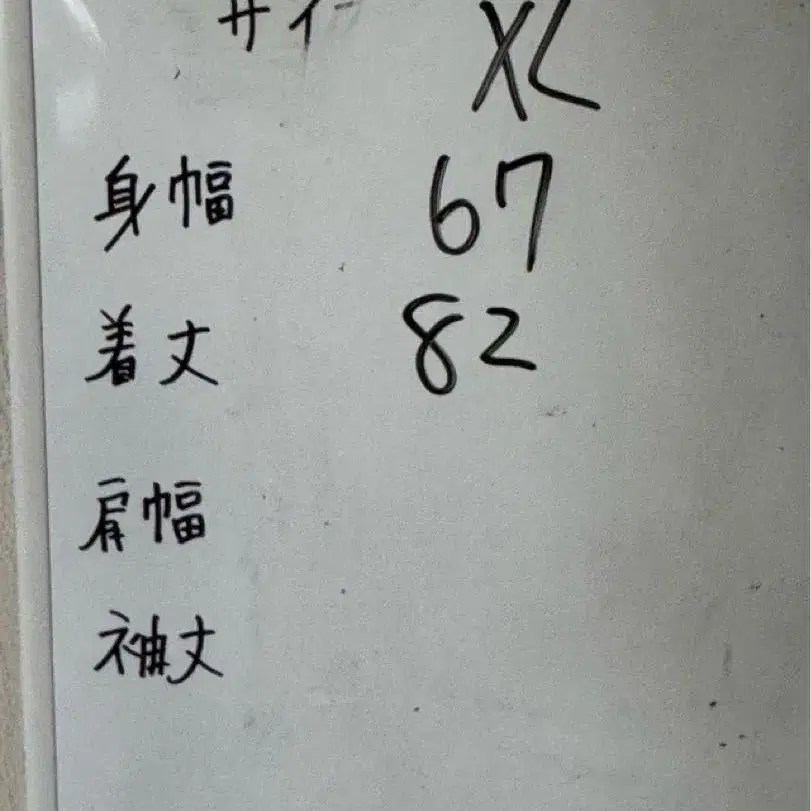 サイ XL
身幅 67
着丈 82
肩幅
袖丈